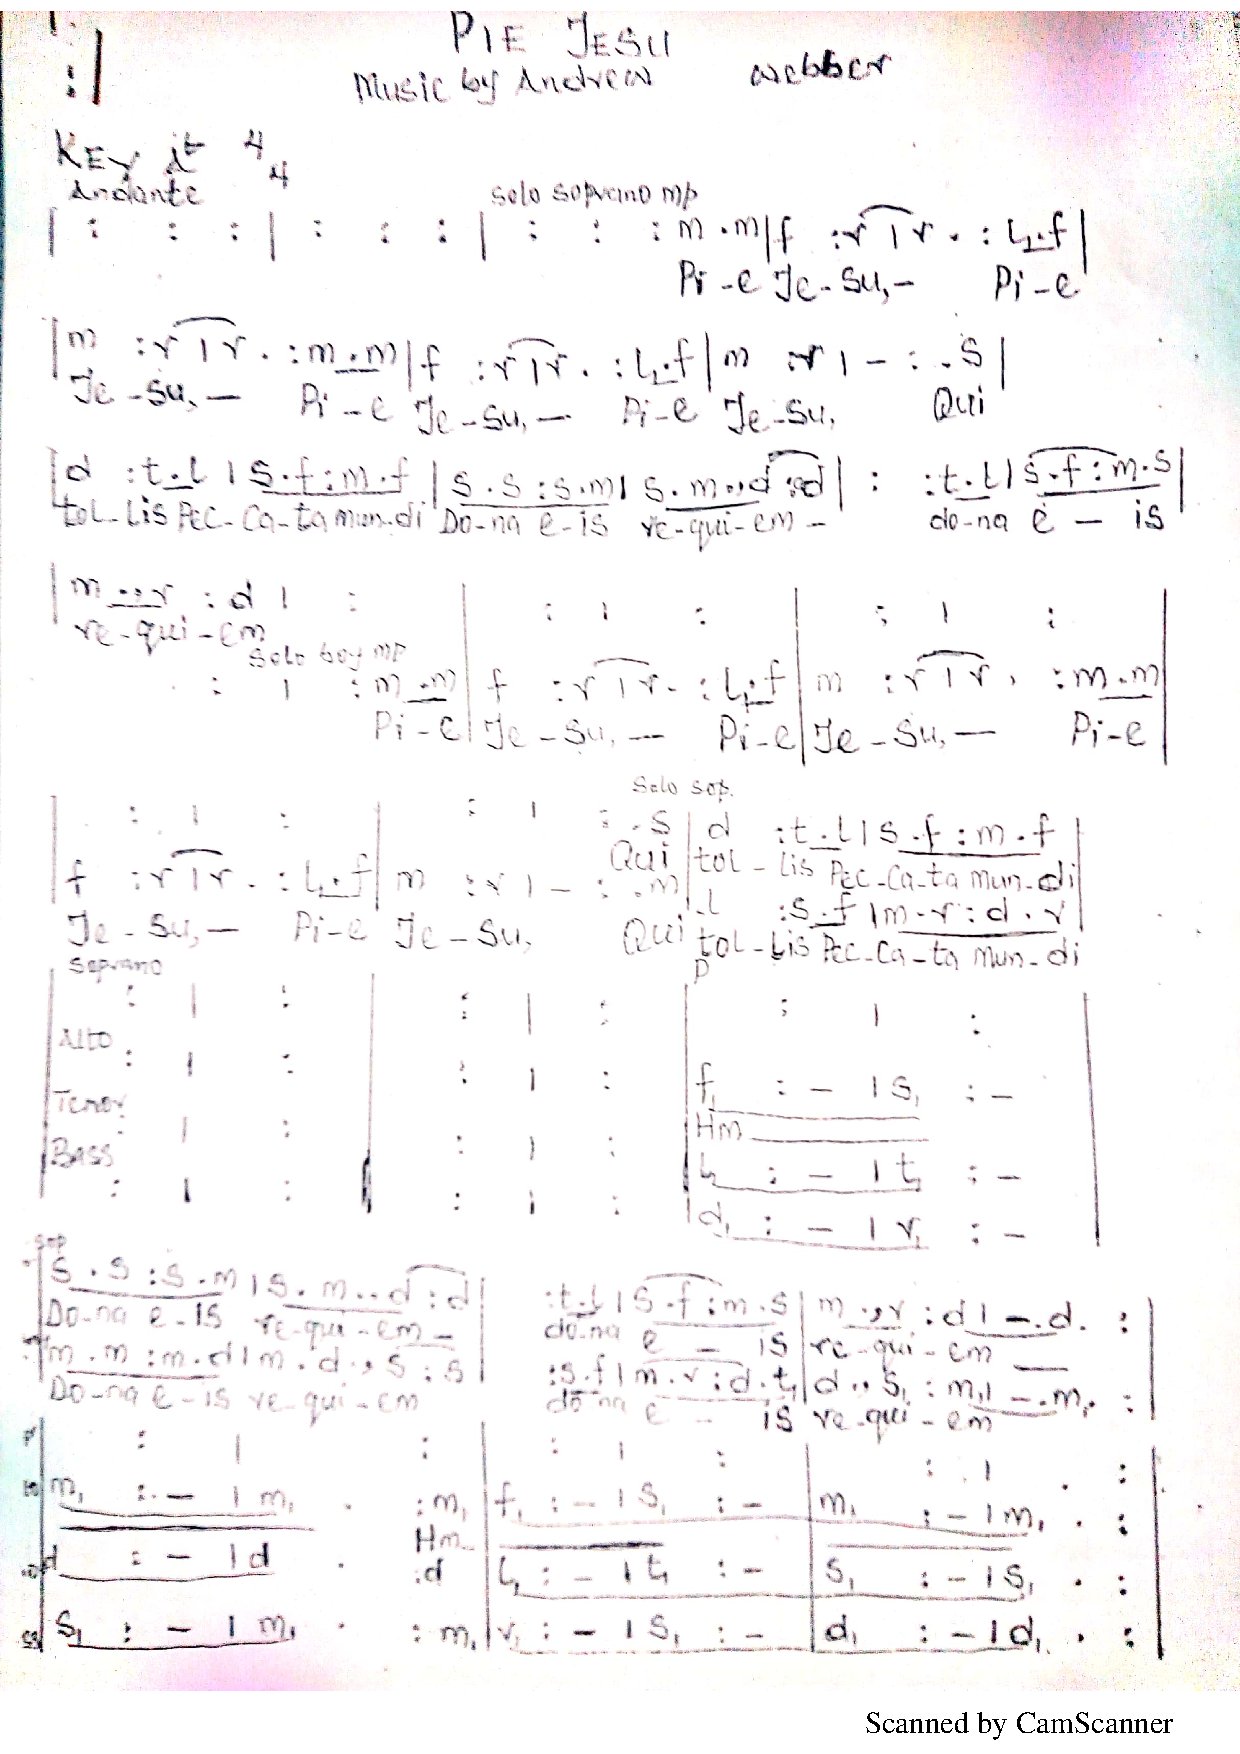 PIE JESU
Music by Andrew webber
KEY 4/4
Andante
solo soprano mp
| : : : | : : : | : : : m .m|f :r | r . : l₁.f|
Pi - e Je - su, - Pi - e
|m :r | r . :m .m|f :r | r . : l₁.f|m :r | - : .s|
Je - su, — Pi - e Je - su, — Pi - e Je - su, Qui
|d :t .l | s .f : m .f |s .s : s .m | s .m .,d :d| : :t .l | s .f : m .s|
tol - lis Pec - ca - ta mun - di Do - na e - is re - qui - em - do - na e — is
|m .,r : d | : | : | : | : | : |
re - qui - em
solo boy mp
: | : m .m| f :r | r . : l₁.f| m :r | r . :m .m|
Pi - e Je - su, — Pi - e Je - su, — Pi - e
Solo sop.
| : | : | : | : .s | d :t .l | s .f : m .f|
Qui tol - lis Pec - ca - ta mun - di
f :r | r . : l₁.f| m :r | - : .m | l :s .f | m .r : d .r
Je - su, — Pi - e Je - su, Qui tol - lis Pec - ca - ta mun - di
Soprano p
| : | : | : | : | : | : |
Alto
: | : | : | : | f₁ : - | s₁ : -
Hm
Tenor
: | : | : | : | l₁ : - | t₁ : -
Bass
: | : | : | : | d₁ : - | r₁ : -
sop
s .s : s .m | s .m .,d :d| :t .l | s .f : m .s|m .,r : d | - .d . :
Do - na e - is re - qui - em - do - na e - is re - qui - em —
m .m : m .d | m .d ., s : s | :s .f | m .r : d .t₁|d ., s₁ : m₁| - .m₁. :
Do - na e - is re - qui - em do - na e - is re - qui - em
: | : | : | : | : | . :
m₁ : - | m₁ . : m₁|f₁ : - | s₁ : - |m₁ : - | m₁ . :
Hm
d : - | d . :d |l₁ : - | t₁ : - |s₁ : - | s₁ . :
s₁ : - | m₁ . : m₁|r₁ : - | s₁ : - |d₁ : - | d₁ . :
Scanned by CamScanner